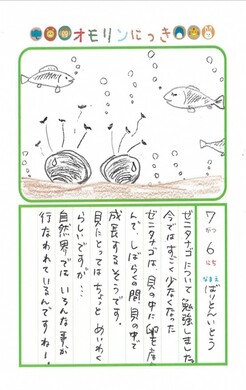 オモリンにっき
7がつ6にち
なまえ ばりとんいとう
ゼニタナゴについて勉強しました
今ではすごく少なくなった
ゼニタナゴは貝の中に卵を産
んで、しばらくの間貝の中で
成長するそうです。
貝にとってはちょっとめいわく
らしいですが…
自然界ではいろんな事が
行なわれているんですねー。